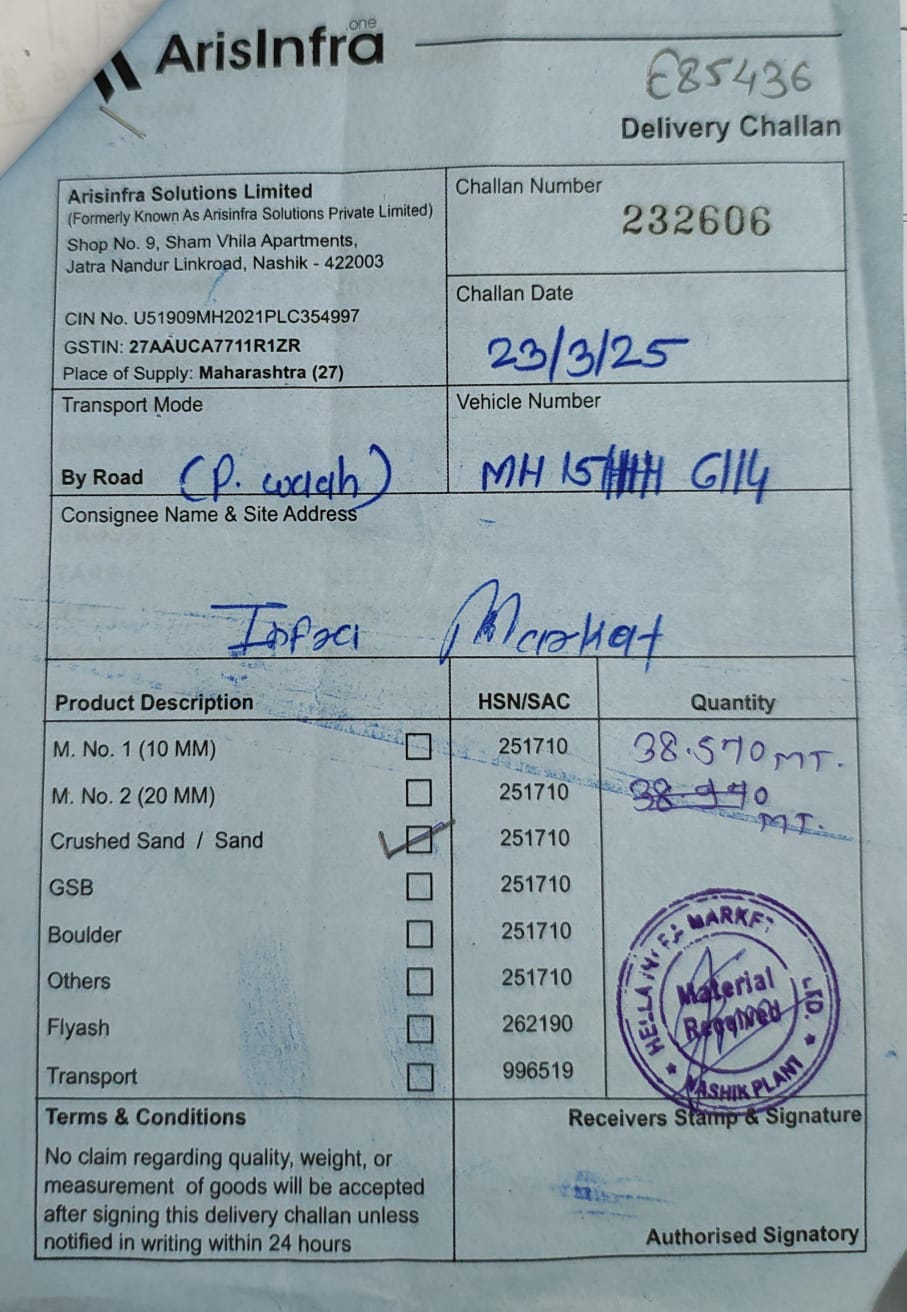 ArisInfra
.one
E85436
Delivery Challan
Arisinfra Solutions Limited
(Formerly Known As Arisinfra Solutions Private Limited)
Shop No. 9, Sham Vhila Apartments,
Jatra Nandur Linkroad, Nashik - 422003
CIN No. U51909MH2021PLC354997
GSTIN: 27AAUCA7711R1ZR
Place of Supply: Maharashtra (27)
Challan Number
232606
Challan Date
23/3/25
Transport Mode
By Road (P. wagh)
Vehicle Number
MH 15 6114
Consignee Name & Site Address
Infra Market
Product Description HSN/SAC Quantity
M. No. 1 (10 MM) 251710 38.570 MT.
M. No. 2 (20 MM) 251710
MT.
Crushed Sand / Sand 251710
GSB 251710
Boulder 251710
Others 251710
Flyash 262190
Transport 996519
HELLA INFRA MARKET LTD.
Material
Received
NASHIK PLANT
Terms & Conditions
No claim regarding quality, weight, or
measurement of goods will be accepted
after signing this delivery challan unless
notified in writing within 24 hours
Receivers Stamp & Signature
Authorised Signatory